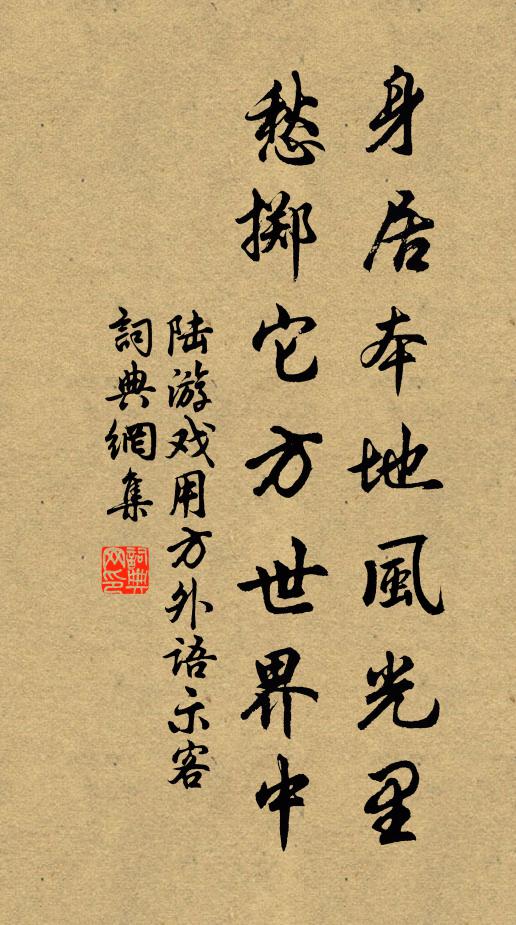 身居本地風光里
愁擲它方世界中
陆游戏用方外语示客
詞典網集
詞典网印